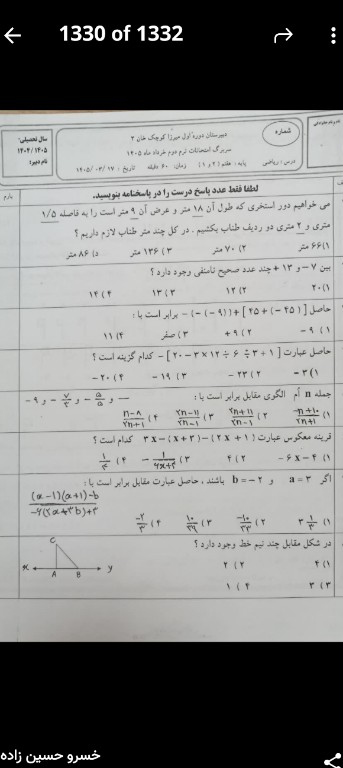 1330 of 1332
شماره
دبیرستان دوره اول میرزا کوچک خان ۲
سربرگ امتحانات ترم دوم خرداد ماه ۱۴۰۵
درس: ریاضی پایه: هفتم ( ۲ و ۱ ) زمان: ۶۰ دقیقه ۱۴۰۵/۰۳/۱۷
سال تحصیلی:
۱۴۰۵/۱۴۰۴
نام دبیر:
لطفا فقط عدد پاسخ درست را در پاسخنامه بنویسید.
می خواهیم دور استخری که طول آن ۱۸ متر و عرض آن ۹ متر است را به فاصله ۱/۵
متری و ۲ متری دو ردیف طناب بکشیم . در کل چند متر طناب لازم داریم ؟
۱) ۶۶ متر ۲) ۷۰ متر ۳) ۱۳۶ متر د) ۸۶ متر
بین ۷− و ۱۳ + چند عدد صحیح نامنفی وجود دارد ؟
۱) ۲۰ ۲) ۱۲ ۳) ۱۳ ۴) ۱۴
حاصل [ (۴۵ −) + ۲۵ ] + ((۹ −) −) − برابر است با :
۱) ۹ − ۲) ۹ + ۳) صفر ۴) ۱۱
حاصل عبارت [ ۱ + ۳ ÷ ۶ ÷ ۱۲ × ۳ − ۲۰ ] − کدام گزینه است ؟
۱) ۳ − ۲) ۲۳ − ۳) ۱۹ − ۴) ۲۰ −
جمله n اُم الگوی مقابل برابر است با :
قرینه معکوس عبارت (۲x + ۱) − (x + ۳) − ۳x کدام است ؟
۱) ۴ − ۶x − ۲) ۴
اگر a = ۳ و b = −۲ باشند ، حاصل عبارت مقابل برابر است با :
(a − 1)(a + 1) − b
در شکل مقابل چند نیم خط وجود دارد ؟
C
x A B y
۱) ۴ ۲) ۲
۳) ۳ ۴) ۱
خسرو حسین زاده